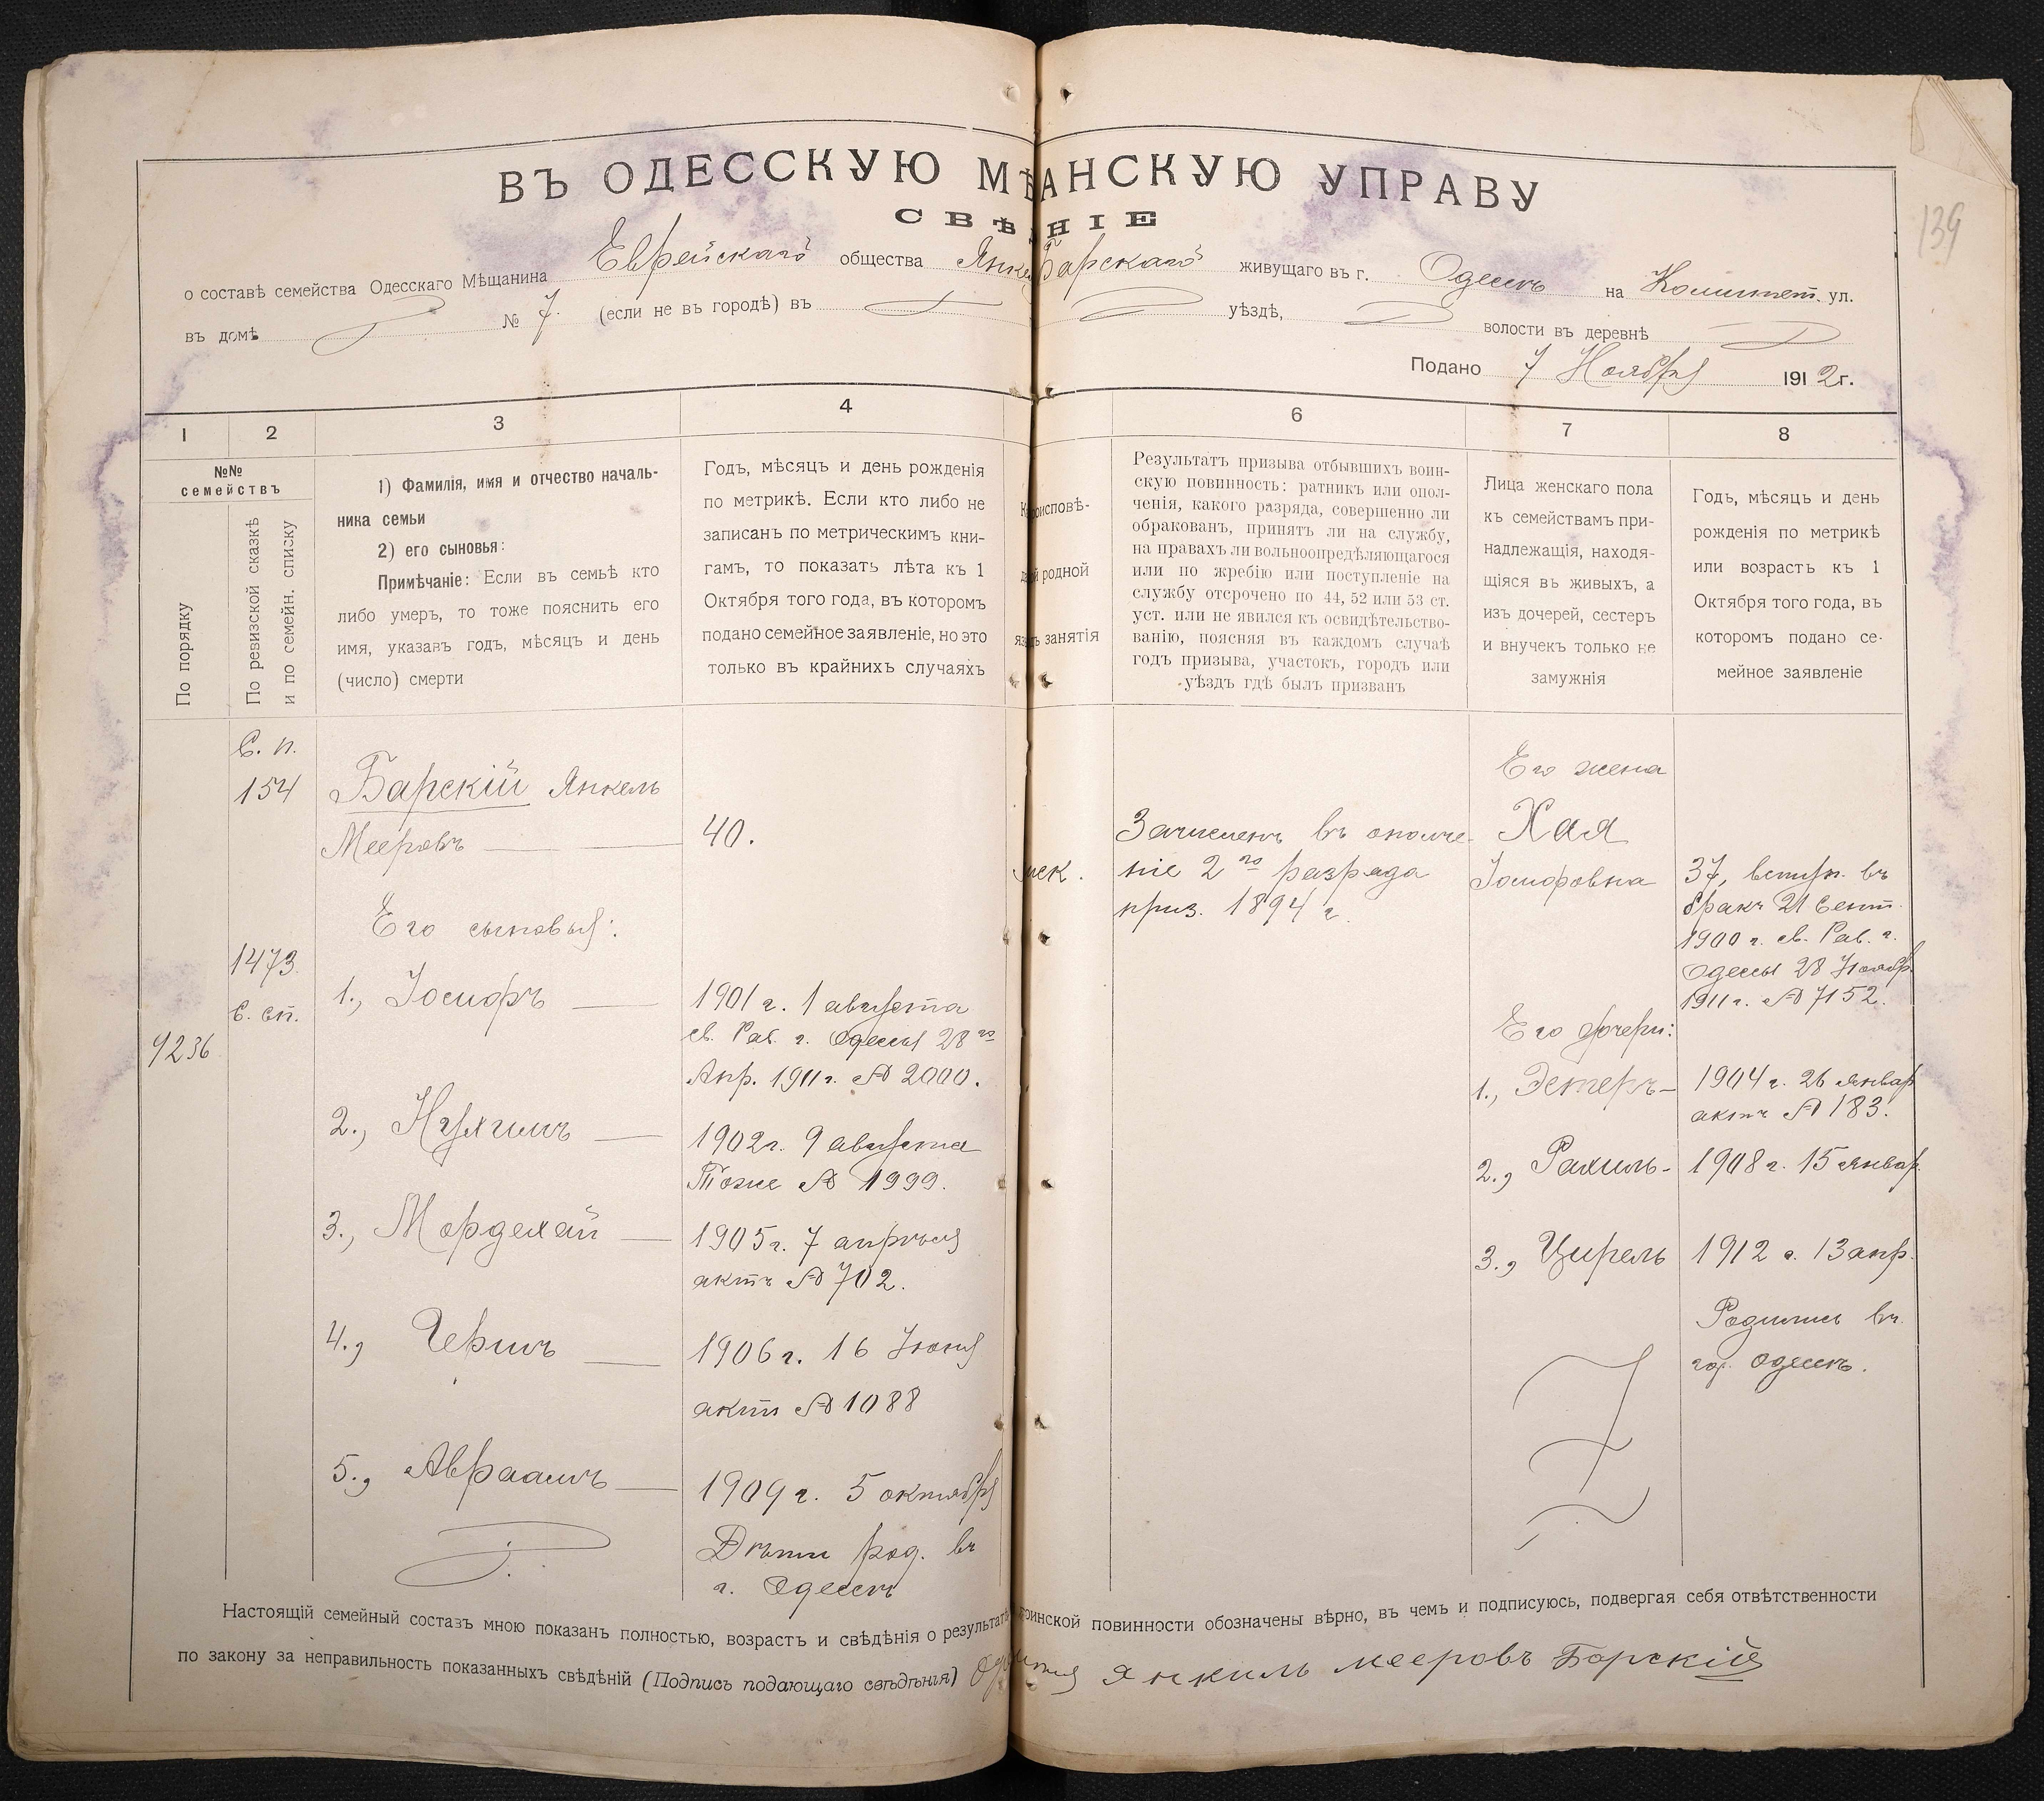 139
ВЪ ОДЕССКУЮ МѢ АНСКУЮ УПРАВУ
СВѢ НІЕ
о составѣ семейства Одесскаго Мѣщанина Еврейскаго общества Янке Барскаго живущаго въ г. Одессѣ на Комитет. ул.
въ домѣ № 7. (если не въ городѣ) въ уѣздѣ, волости въ деревнѣ
Подано 7 Ноября 1912 г.
1 2 3 4 6 7 8
№№ семействъ
По порядку
По ревизской сказкѣ
и по семейн. списку
1) Фамилія, имя и отчество началь-
ника семьи
2) его сыновья:
Примѣчаніе: Если въ семьѣ кто
либо умеръ, то тоже пояснить его
имя, указавъ годъ, мѣсяцъ и день
(число) смерти
Годъ, мѣсяцъ и день рожденія
по метрикѣ. Если кто либо не
записанъ по метрическимъ кни-
гамъ, то показать лѣта къ 1
Октября того года, въ которомъ
подано семейное заявленіе, но это
только въ крайнихъ случаяхъ
роисповѣ-
й родной
яз ъ занятія
Результатъ призыва отбывшихъ воин-
скую повинность: ратникъ или опол-
ченія, какого разряда, совершенно ли
обракованъ, принятъ ли на службу,
на правахъ ли вольноопредѣляющагося
или по жребію или поступленіе на
службу отсрочено по 44, 52 или 53 ст.
уст. или не явился къ освидѣтельство-
ванію, поясняя въ каждомъ случаѣ
годъ призыва, участокъ, городъ или
уѣздъ гдѣ былъ призванъ
Лица женскаго пола
къ семействамъ при-
надлежащія, находя-
щіяся въ живыхъ, а
изъ дочерей, сестеръ
и внучекъ только не
замужнія
Годъ, мѣсяцъ и день
рожденія по метрикѣ
или возрастъ къ 1
Октября того года, въ
которомъ подано се-
мейное заявленіе
9236
С. п.
154
1473
С. сп.
Барскій Янкель
Мееровъ
Его сыновья:
1., Іосифъ
2., Нухимъ
3., Мордехай
4., Гершъ
5., Авраамъ
40.
1901 г. 1 августа
св. Рав. г. Одессы 28 го
Апр. 1911 г. № 2000.
1902 г. 9 августа
Тоже № 1999.
1905 г. 7 апрѣля
актъ № 702.
1906 г. 16 Іюня
акт № 1088
1909 г. 5 октября
Дѣти род. въ
г. Одессѣ
мек.
Зачисленъ въ ополче-
ніе 2 го разряда
приз. 1894 г.
Его жена
Хая
Іосифовна
Его дочери:
1., Эстеръ
2., Рахиль
3., Цирель
37, вступ. въ
бракъ 21 Сент.
1900 г. св. Рав. г.
Одессы 28 Ноябр.
1911 г. № 7152.
1904 г. 26 январ
актъ № 183.
1908 г. 15 январ.
1912 г. 13 апр.
Родились въ
гор. Одессѣ.
Настоящій семейный составъ мною показанъ полностью, возрастъ и свѣдѣнія о результатѣ воинской повинности обозначены вѣрно, въ чемъ и подписуюсь, подвергая себя отвѣтственности
по закону за неправильность показанныхъ свѣдѣній (Подпись подающаго свѣдѣнія) Янкиль Мееровъ Барскій